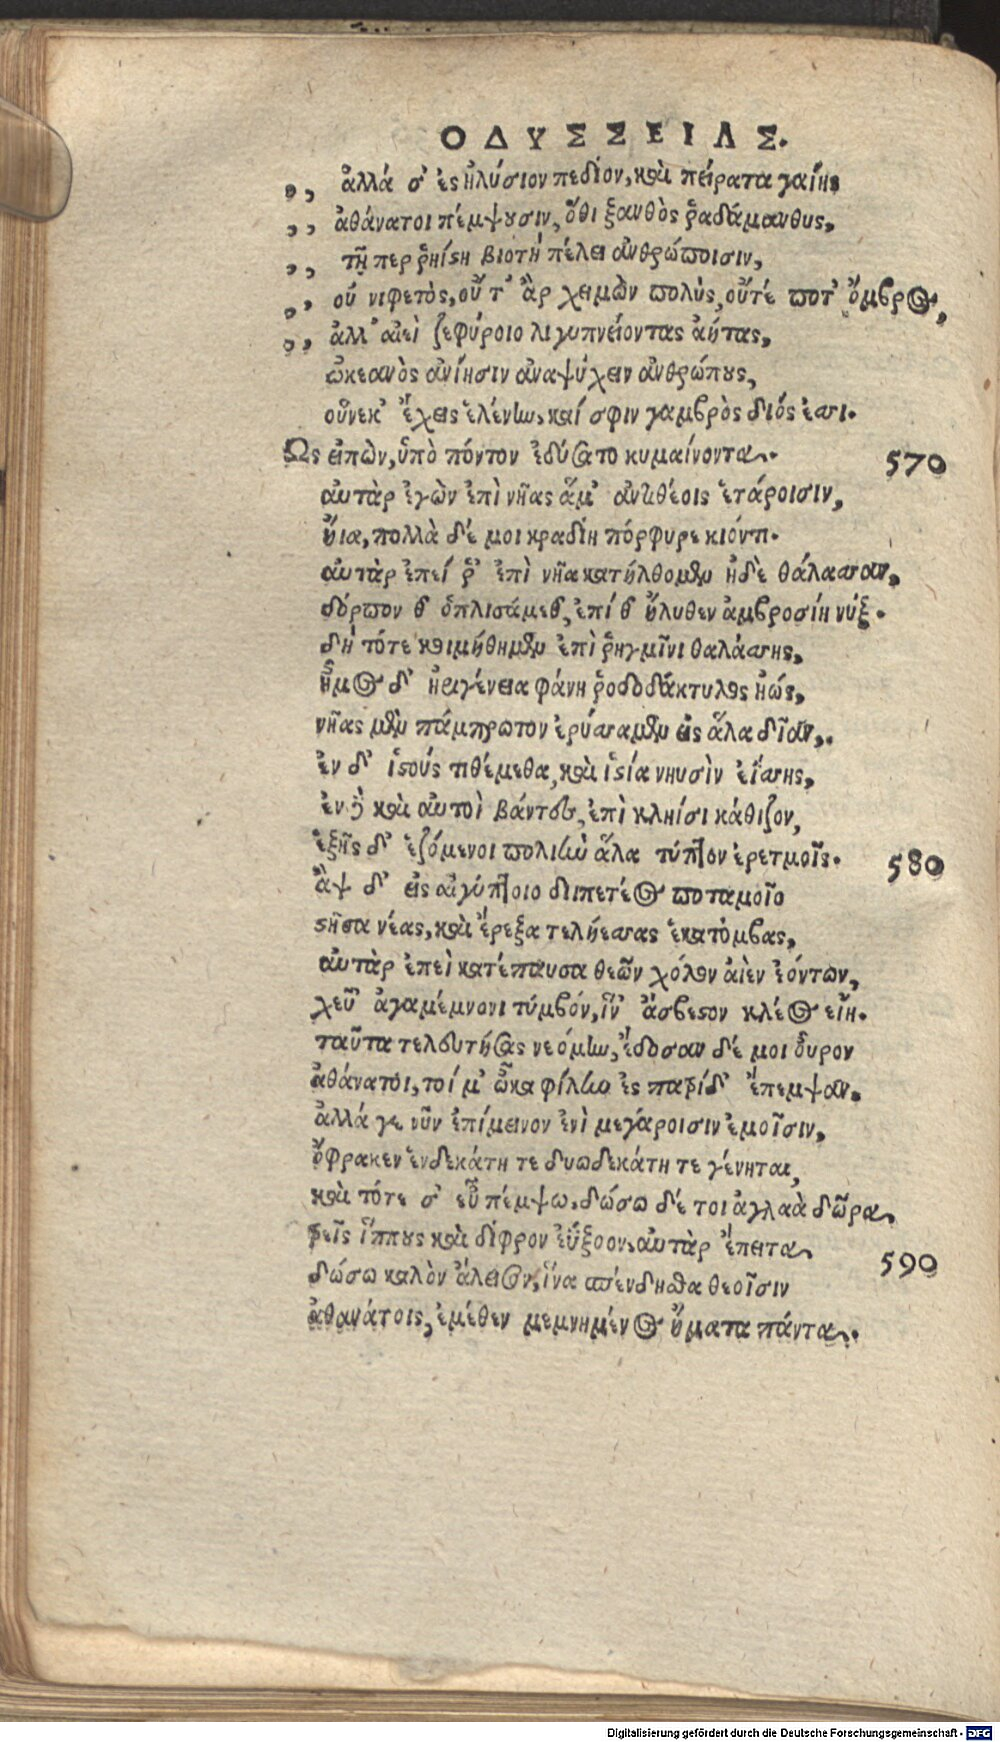 ΟΔΥΣΣΕΙΑΣ.
,, ἀλλά σ' ἐς ἠλύσιον πεδίον, καὶ πείρατα γαίης
,, ἀθάνατοι πέμψουσιν, ὅθι ξανθὸς ῥαδάμανθυς,
,, τῇ περ ῥηίστη βιοτὴ πέλει ἀνθρώποισιν,
,, οὐ νιφετὸς, οὔτ' ἂρ χειμὼν πολὺς, οὔτέ ποτ' ὄμβρος,
,, ἀλλ' αἰεὶ ζεφύροιο λιγυπνείοντας ἀήτας,
ὠκεανὸς ἀνίησιν ἀναψύχειν ἀνθρώπους,
οὕνεκ' ἔχεις ἑλένην, καί σφιν γαμβρὸς διός ἐσσι.
Ὣς εἰπὼν, ὑπὸ πόντον ἐδύσατο κυμαίνοντα. 570
αὐτὰρ ἐγὼν ἐπὶ νῆας ἅμ' ἀντιθέοις ἑτάροισιν,
ἤια, πολλὰ δέ μοι κραδίη πόρφυρε κιόντι.
αὐτὰρ ἐπεί ῥ' ἐπὶ νῆα κατήλθομεν ἠδὲ θάλασσαν,
δόρπον θ' ὁπλισάμεθ', ἐπί θ' ἤλυθεν ἀμβροσίη νύξ.
δὴ τότε κοιμήθημεν ἐπὶ ῥηγμῖνι θαλάσσης,
ἦμος δ' ἠριγένεια φάνη ῥοδοδάκτυλος ἠώς,
νῆας μὲν πάμπρωτον ἐρύσσαμεν εἰς ἅλα δῖαν,.
ἐν δ' ἱστούς τιθέμεθα, καὶ ἱστία νηυσὶν ἐΐσσης,
ἐν δὲ καὶ αὐτοὶ βάντες, ἐπὶ κληίσι κάθιζον,
ἑξῆς δ' ἑζόμενοι πολιὴν ἅλα τύπτον ἐρετμοῖς. 580
ἂψ δ' εἰς αἰγύπτοιο διιπετέος ποταμοῖο
στῆσα νέας, καὶ ἔρεξα τεληέσσας ἑκατόμβας,
αὐτὰρ ἐπεὶ κατέπαυσα θεῶν χόλον αἰὲν ἐόντων,
χεῦ' ἀγαμέμνονι τύμβόν, ἵν' ἄσβεστον κλέος εἴη.
ταῦτα τελευτήσας νεόμην, ἔδοσαν δέ μοι οὖρον
ἀθάνατοι, τοί μ' ὦκα φίλην ἐς πατρίδ' ἔπεμψαν.
ἀλλά γε νῦν ἐπίμεινον ἐνὶ μεγάροισιν ἐμοῖσιν,
ὄφρα κεν ἑνδεκάτη τε δυωδεκάτη τε γένηται,
καὶ τότε σ' εὖ πέμψω, δώσω δέ τοι ἀγλαὰ δῶρα,
τρεῖς ἵππους καὶ δίφρον ἐΰξοον, αὐτὰρ ἔπειτα, 590
δώσω καλὸν ἄλεισον, ἵνα σπένδησθα θεοῖσιν
ἀθανάτοις, ἐμέθεν μεμνημένος ἤματα πάντα.
Digitalisierung gefördert durch die Deutsche Forschungsgemeinschaft - DFG